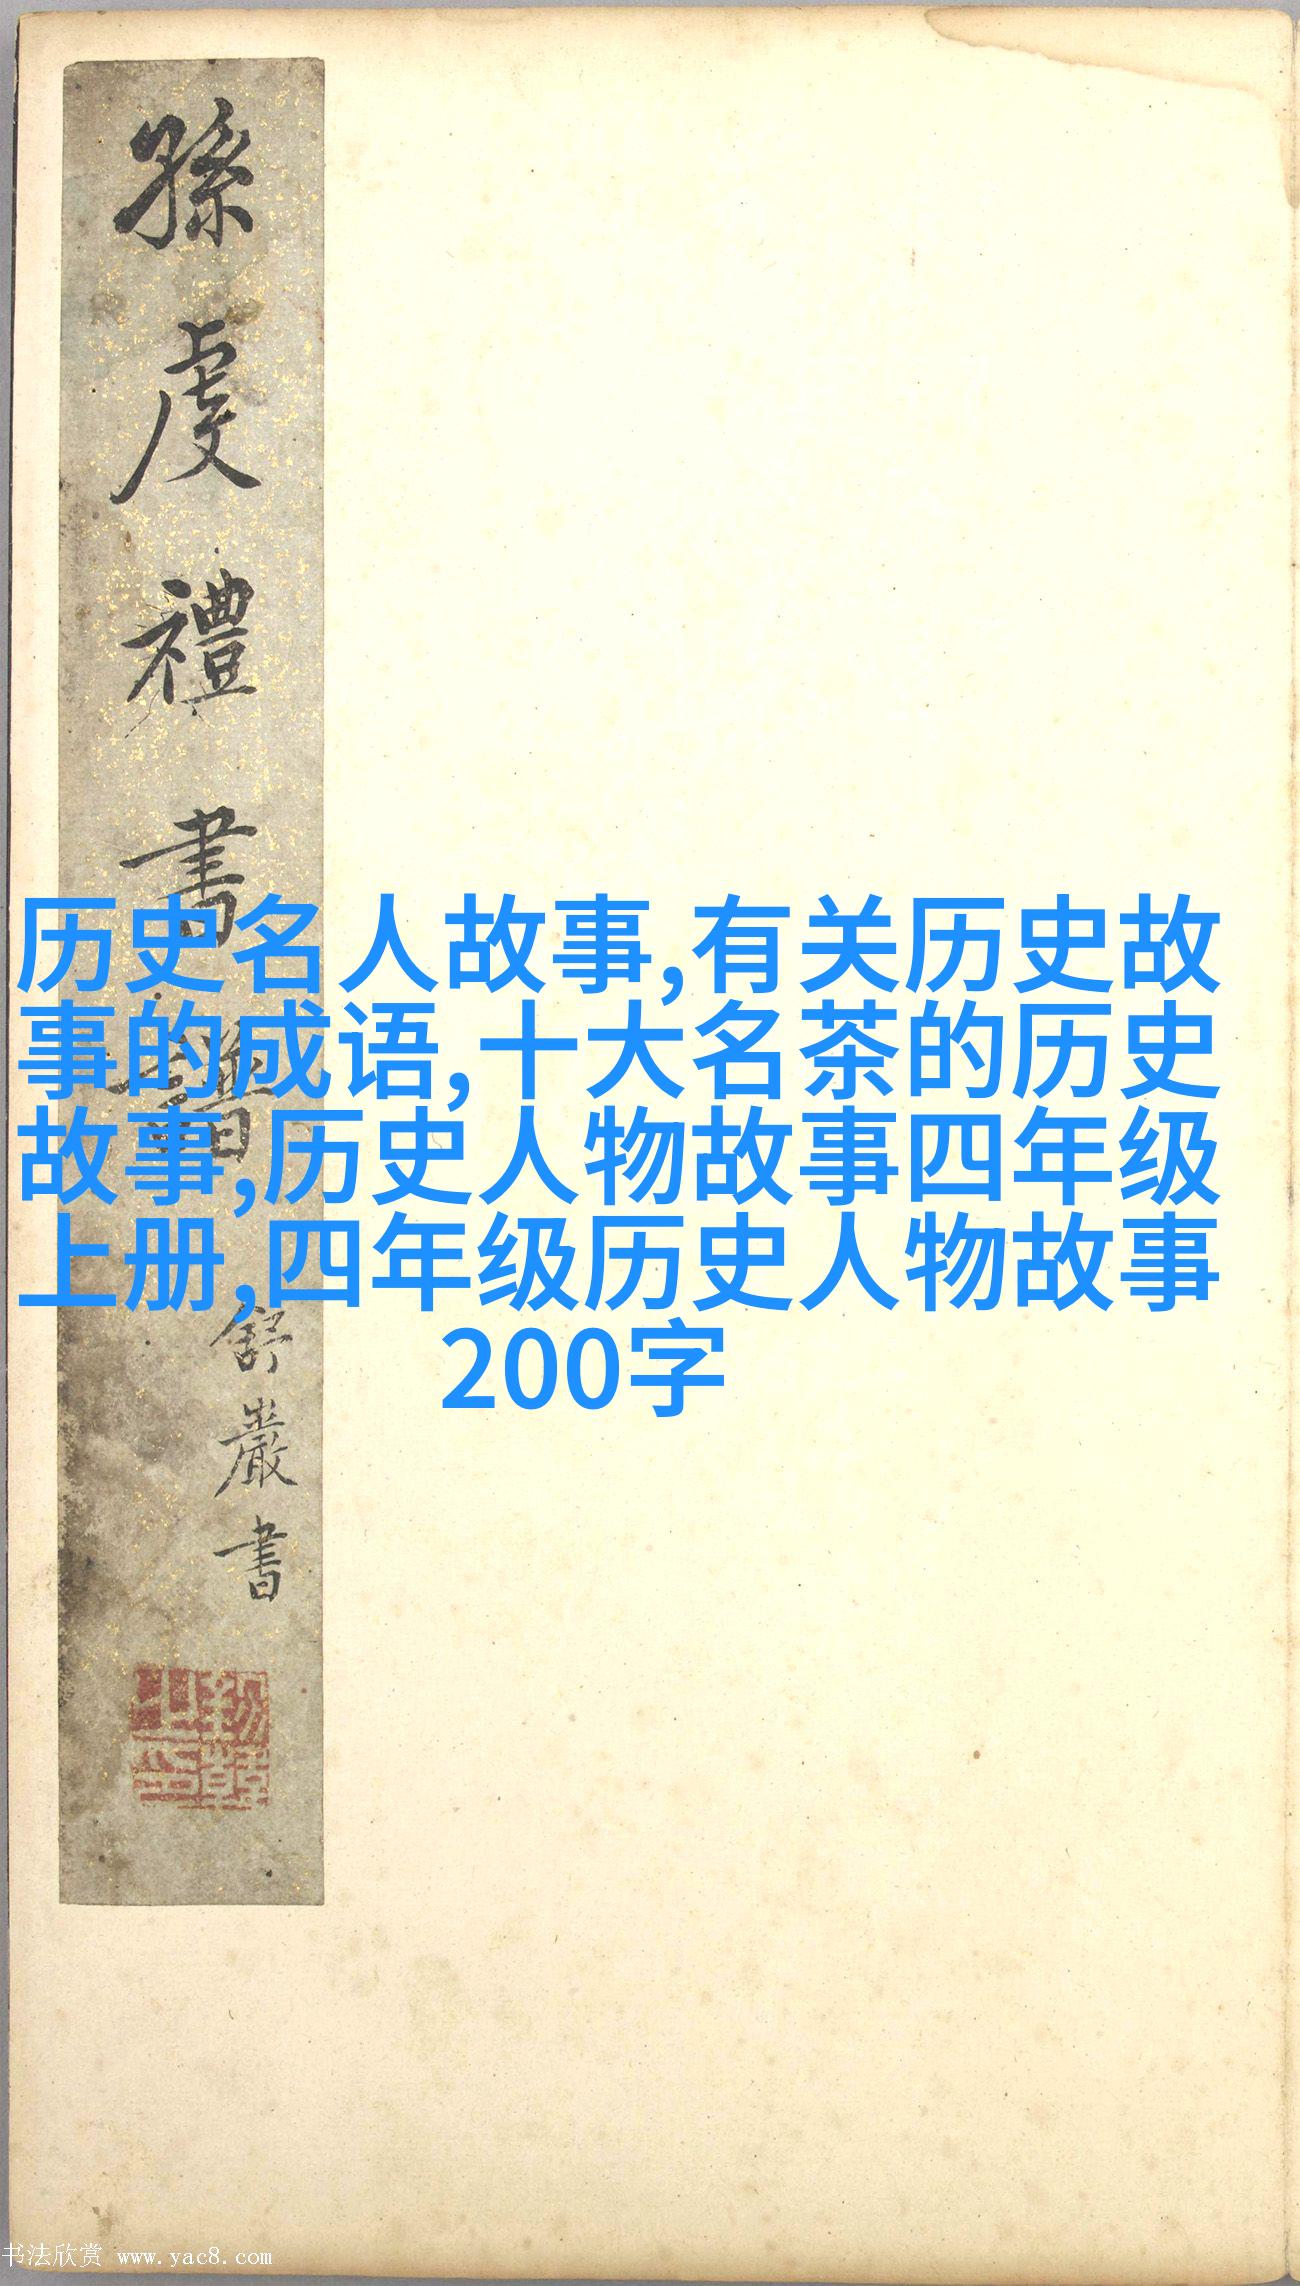 孫虔禮書譜
舒嚴書
历史名人故事,有关历史故
事的成语,十大名茶的历史
故事,历史人物故事四年级
上册,四年级历史人物故事
200字
书法欣赏 www.yac8.com